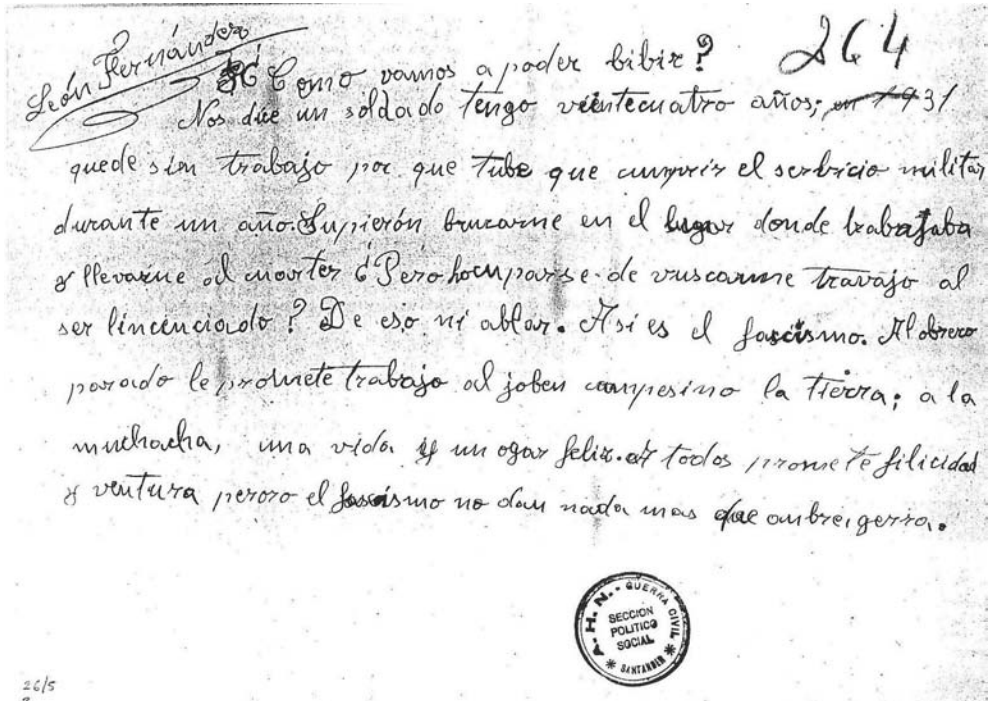 León Fernández
264
¿Como vamos a poder bibir?
Nos dice un soldado tengo veintecuatro años; en 1931
quede sin trabajo por que tube que cumprir el serbicio militar
durante un año. Supierón bruzarme en el lugar donde trabajaba
y llevarme al cuarter ¿Pero hocuparse de vuscarme travajo al
ser lincenciado? De eso ni ablar. Asi es el fascismo. Al obrero
parado le promete trabajo al joben campesino la tierra; a la
muchacha, una vida y un ogar feliz. a todos promete filicidad
y ventura peroro el fascismo no dan nada mas que ambre i gerra.
A.H.N. - GUERRA CIVIL * SANTANDER *
SECCION
POLITICO
SOCIAL
26/5